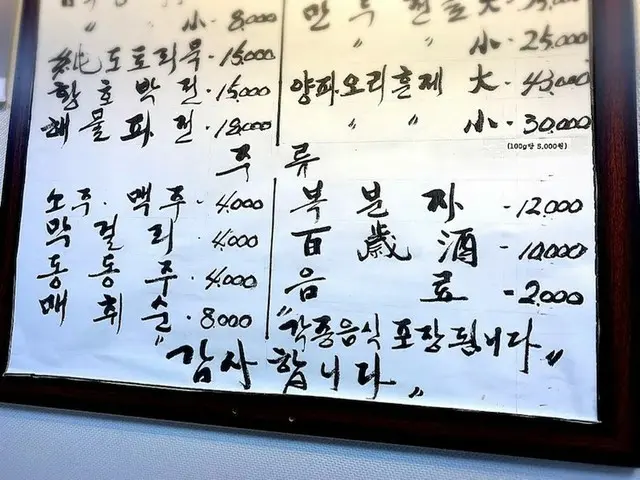 〃 小 - 8,000
純도토리묵 - 15,000
황호박전 - 15,000
해물파전 - 18,000
만두전골 大 -
〃 〃 小 - 25,000
양파오리훈제 大 - 43,000
〃 〃 小 - 30,000
(100g당 5,000원)
주류
소주. 맥주 - 4,000
막걸리 - 4,000
동동주 - 4,000
매취순 - 8,000
복분자 - 12,000
百歲酒 - 10,000
음료 - 2,000
"각종음식 포장됩니다"
"감사합니다"